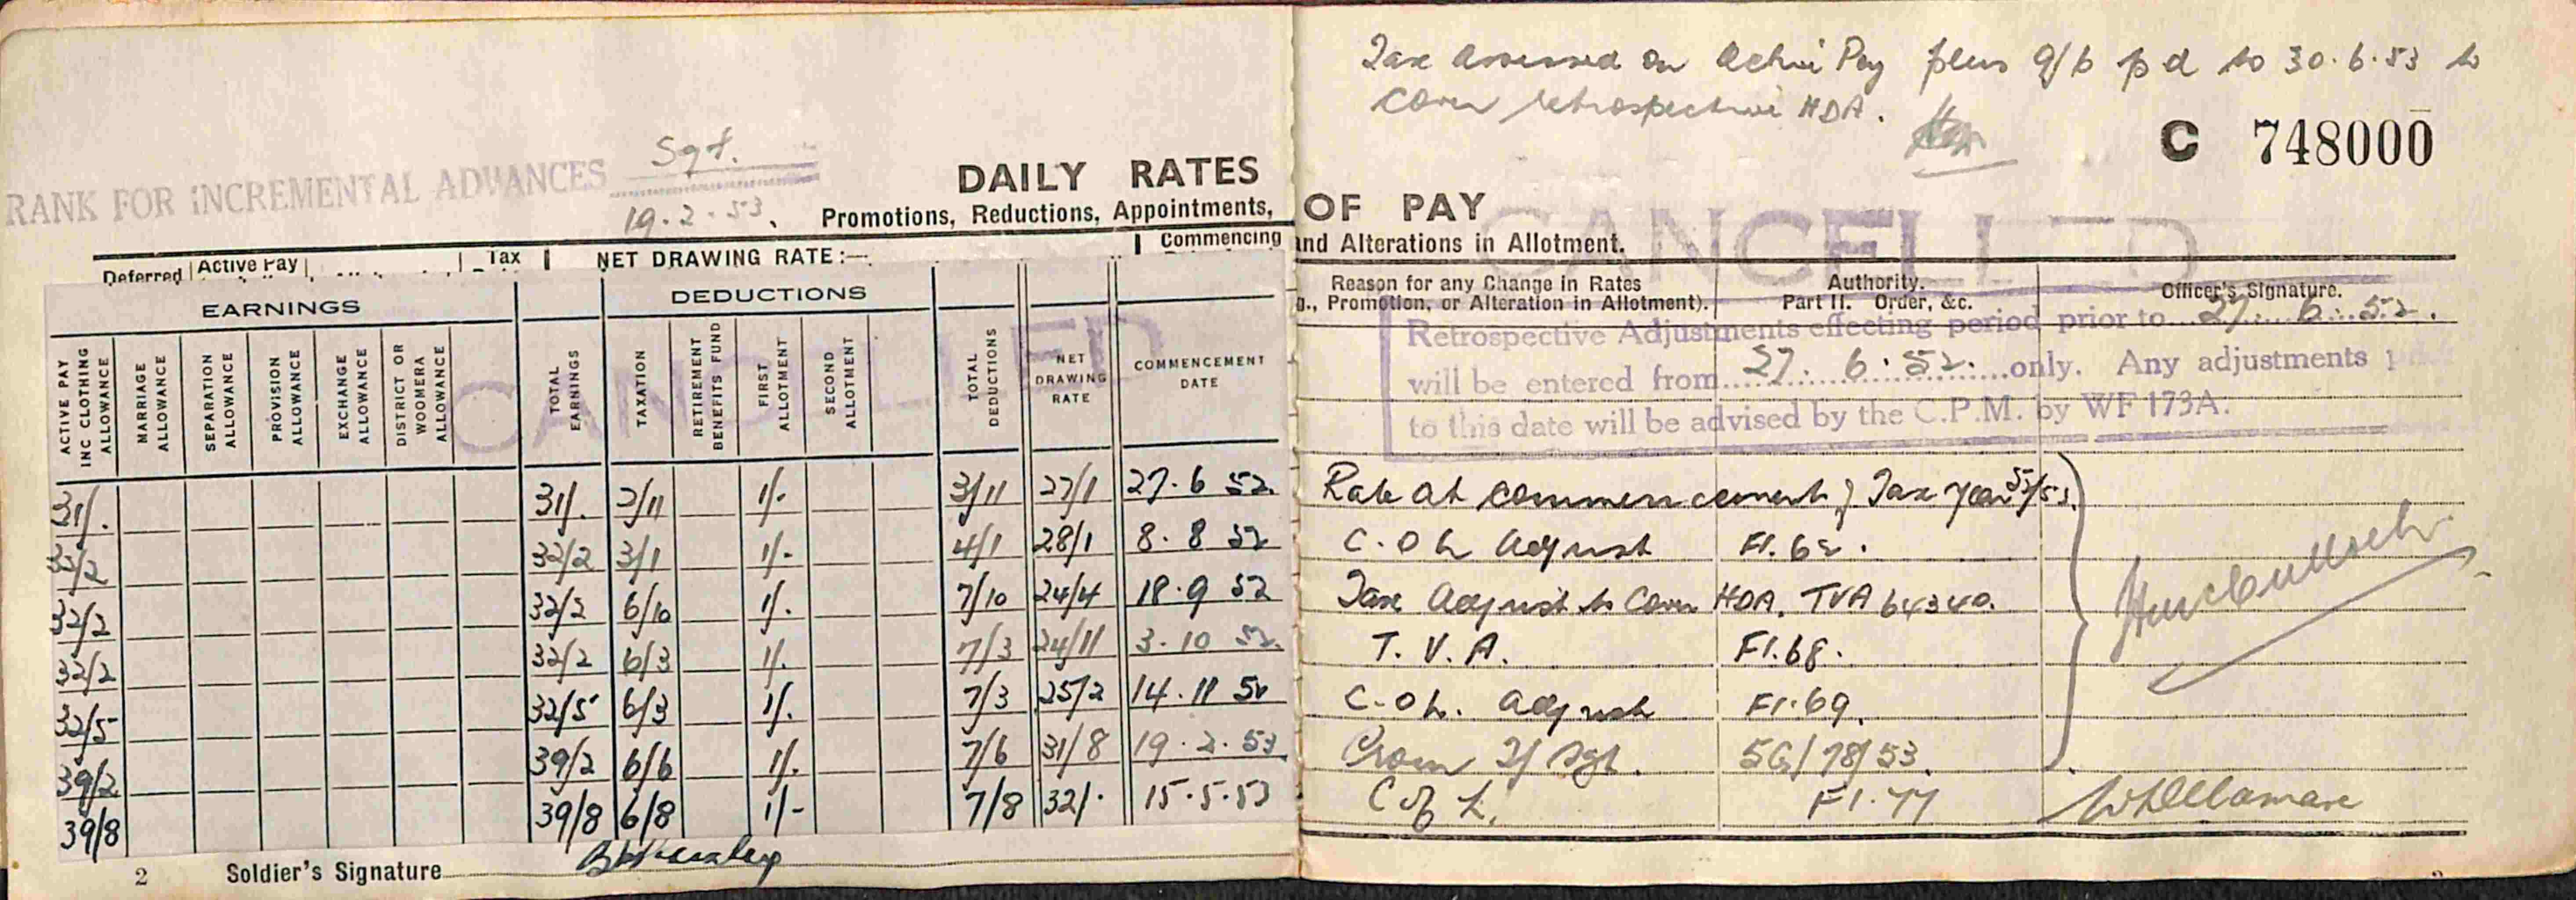 Tax assessed on Active Pay plus 9/6 p d to 30.6.53 to
cover retrospective HDA.
C 748000
RANK FOR INCREMENTAL ADVANCES Sgt.
19.2.53.
DAILY RATES OF PAY
Promotions, Reductions, Appointments, and Alterations in Allotment.
CANCELLED
Deferred Active Pay Tax NET DRAWING RATE:— Commencing
Reason for any Change in Rates Authority. Officer's Signature.
g., Promotion, or Alteration in Allotment). Part II. Order, &c.
EARNINGS DEDUCTIONS
ACTIVE PAY INC CLOTHING ALLOWANCE
MARRIAGE ALLOWANCE
SEPARATION ALLOWANCE
PROVISION ALLOWANCE
EXCHANGE ALLOWANCE
DISTRICT OR WOOMERA ALLOWANCE
TOTAL EARNINGS
TAXATION
RETIREMENT BENEFITS FUND
FIRST ALLOTMENT
SECOND ALLOTMENT
TOTAL DEDUCTIONS
NET DRAWING RATE
COMMENCEMENT DATE
CANCELLED
Retrospective Adjustments effecting period prior to 27.6.52.
will be entered from 27.6.52. only. Any adjustments
to this date will be advised by the C.P.M. by WF 173A.
31/. 31/. 2/11 1/- 3/11 27/1 27.6 52. Rate at commencement of Tax year 52/53.
32/2 32/2 3/1 1/- 4/1 28/1 8.8 52 C.O L Adjust F1.62.
32/2 32/2 6/10 1/. 7/10 24/4 18.9 52 Tax Adjust to Cover HDA. TVA 64340.
32/2 32/2 6/3 1/. 7/3 24/11 3.10 52. T.V.A. F1.68.
32/5 32/5 6/3 1/. 7/3 25/2 14.11 52 C.O L. Adjust F1.69.
39/2 39/2 6/6 1/. 7/6 31/8 19.2.53 Prom T/Sgt. 5G/78/53.
39/8 39/8 6/8 1/- 7/8 32/. 15.5.53 C of L. F1.77
2 Soldier's Signature